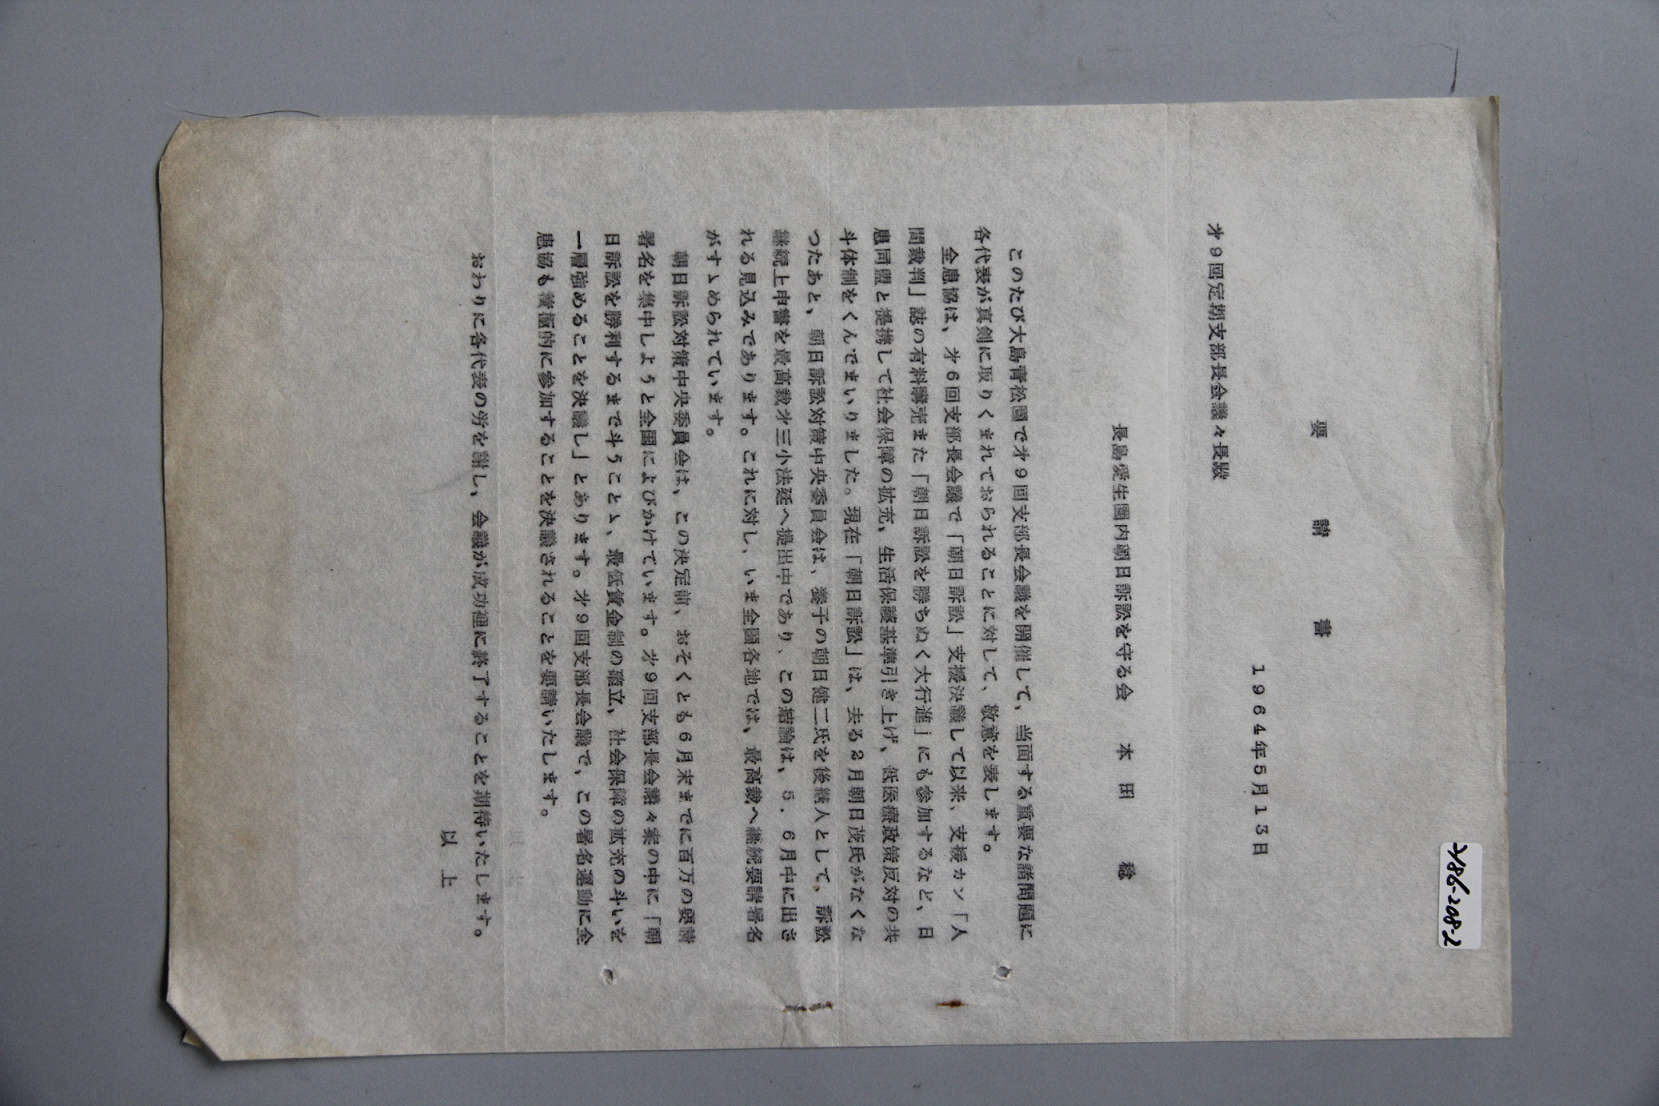 要請書
1964年5月13日
オ9回定期支部長会議々長殿
長島愛生園内朝日訴訟を守る会　本田　稔
このたび大島青松園でオ9回支部長会議を開催して、当面する重要な諸問題に
各代表が真剣に取りくまれておられることに対して、敬意を表します。
全患協は、オ6回支部長会議で「朝日訴訟」支援決議して以来、支援カン「人
間裁判」誌の有料購売また「朝日訴訟を勝ちぬく大行進」にも参加するなど、日
患同盟と提携して社会保障の拡充、生活保護基準引き上げ、低医療政策反対の共
斗体制をくんでまいりました。現在「朝日訴訟」は、去る2月朝日茂氏がなくな
つたあと、朝日訴訟対策中央委員会は、養子の朝日健二氏を後継人として、訴訟
継続上申書を最高裁オ三小法廷へ提出中であり、この結論は、5．6月中に出さ
れる見込みであります。これに対し、いま全国各地では、最高裁へ継続要請署名
がすゝめられています。
朝日訴訟対策中央委員会は、この決定前、おそくとも6月末までに百万の要請
署名を集中しようと全国によびかけています。オ9回支部長会議々案の中に「朝
日訴訟を勝利するまで斗うことゝ、最低賃金制の確立、社会保障の拡充の斗いを
一層強めることを決議し」とあります。オ9回支部長会議で、この署名運動に全
患協も積極的に参加することを決議されることを要請いたします。
おわりに各代表の労を謝し、会議が成功裡に終了することを期待いたします。
以上
Y86-208-2